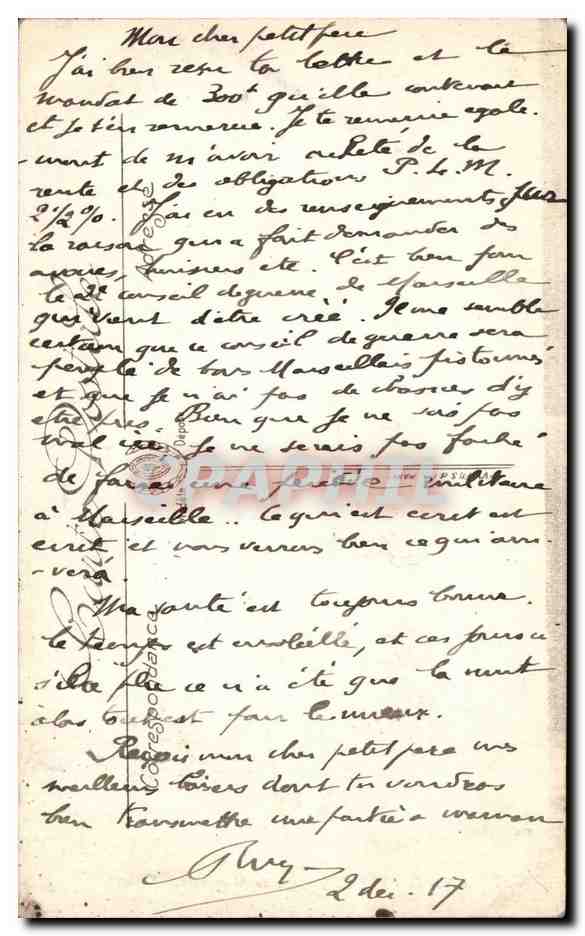 Mon cher petit père
J'ai bien reçu ta lettre et le
mandat de 300f qu'elle contenait
et je t'en remercie. Je te remercie egale-
-ment de m'avoir acheté de la
rente et des obligations P.L.M.
2 1/2 %. J'ai eu des renseignements sur
la raison qui a fait demander des
avoués, huissiers etc. C'est bien pour
le 2e conseil de guerre de Marseille
qui vient d'être créé. Il me semble
certain que ce conseil de guerre sera
peuplé de bons Marseillais pistonnés
et que je n'ai pas de chances d'y
etre pris. Bien que je ne sois pas
mal ici je ne serais pas faché
de faire une periode militaire
à Marseille.. Ce qui est ecrit est
ecrit et nous verrons bien ce qui arri-
-vera.
Ma santé est toujours bonne.
le temps est et ces jours ci
s'il a plu ce n'a été que la nuit
alors tout est pour le mieux.
Reçois mon cher petit père mes
meilleurs baisers dont tu voudras
bien transmettre une partie a maman
2 dec. 17
Carte Postale
Correspondance
Adresse
PAPHIL